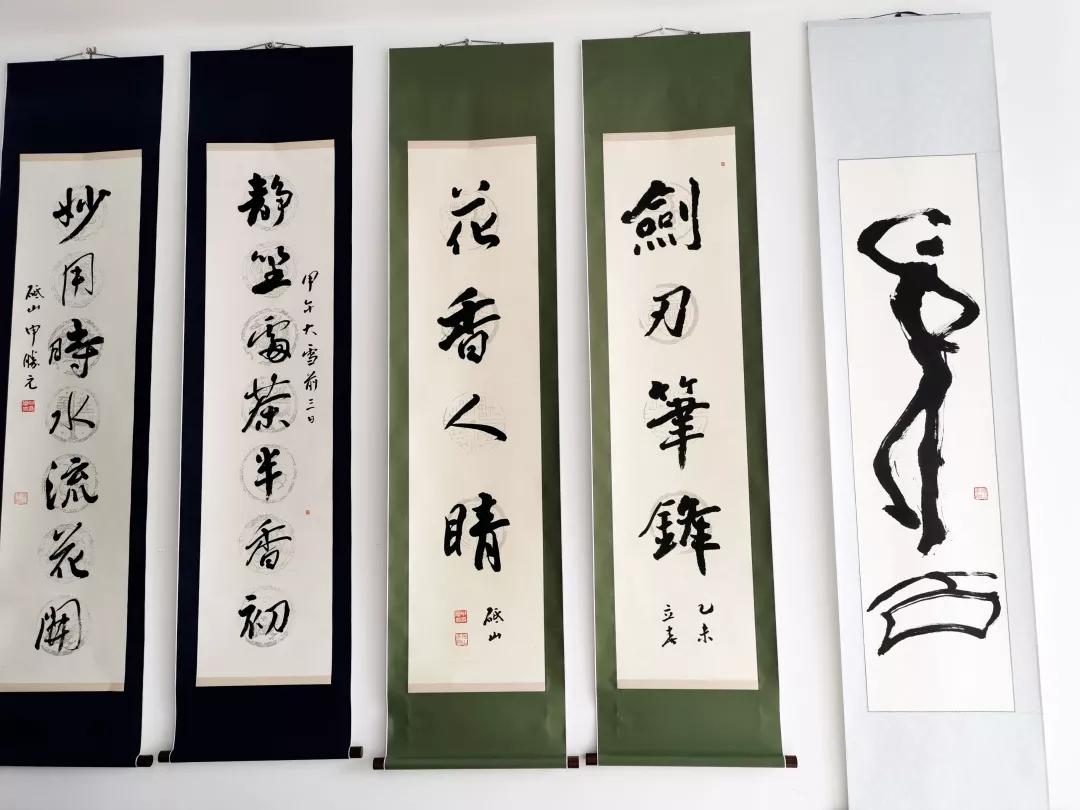 劍刃筆鋒
乙未
立春
花香人睛
砥山
甲午大雪前三日
靜坐處茶半香初
妙用時水流花開
砥山申勝元